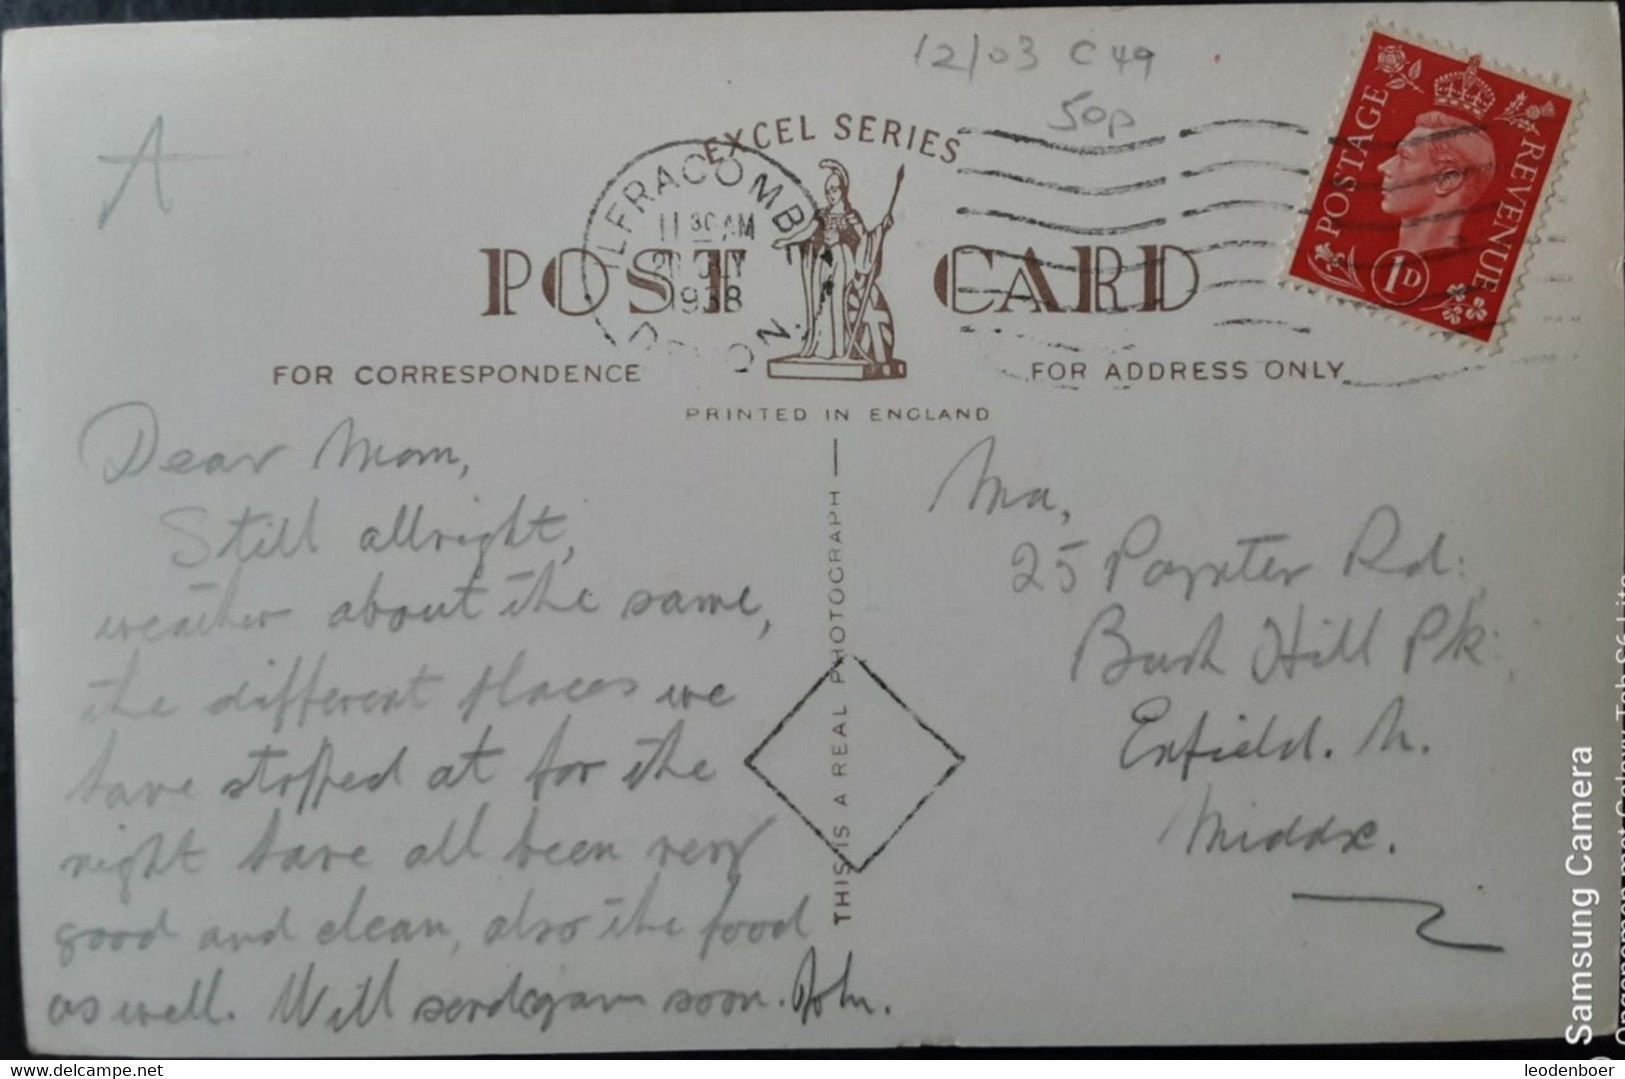 12/03 C49
50p
A
EXCEL SERIES
ILFRACOMBE
11 30 AM
1938
DEVON
POSTAGE REVENUE
1D
POST CARD
FOR CORRESPONDENCE
FOR ADDRESS ONLY
PRINTED IN ENGLAND
THIS IS A REAL PHOTOGRAPH
Dear Mom,
Still allright,
weather about the same,
the different places we
have stopped at for the
night have all been very
good and clean, also the food
as well. Will send again soon. John.
Ma,
25 Poynter Rd.
Bush Hill Pk.
Enfield. N.
Middx.
Samsung Camera
Opgenomen met Galaxy Tab S6 Lite
delcampe.net
leodenboer